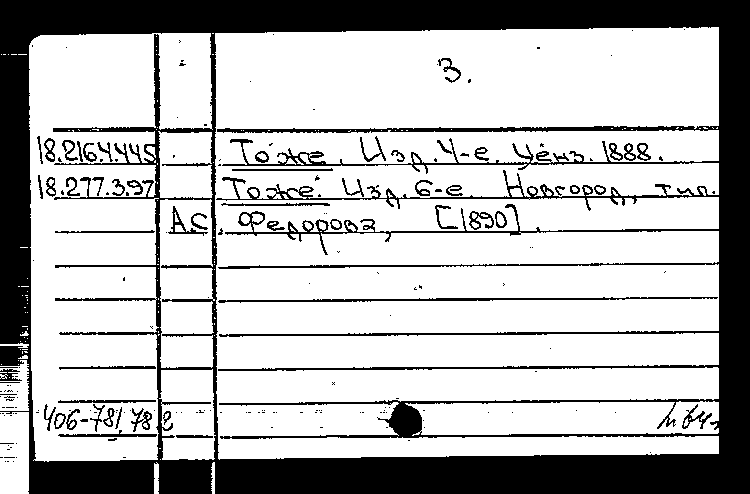 3.
18.216.4.445 То же. Изд. 4-е. Ценз. 1888.
18.277.3.97 То же. Изд. 6-е. Новгород, тип.
А.С. Федорова, [1890].
406-781, 782